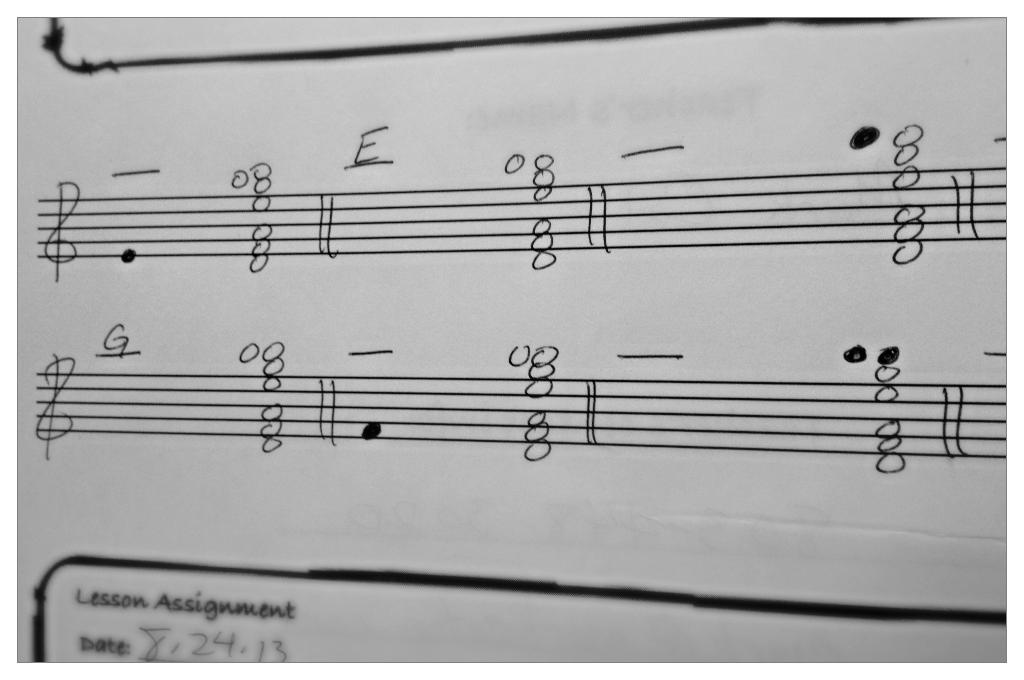 E
G
Lesson Assignment
Date: 8.24.13